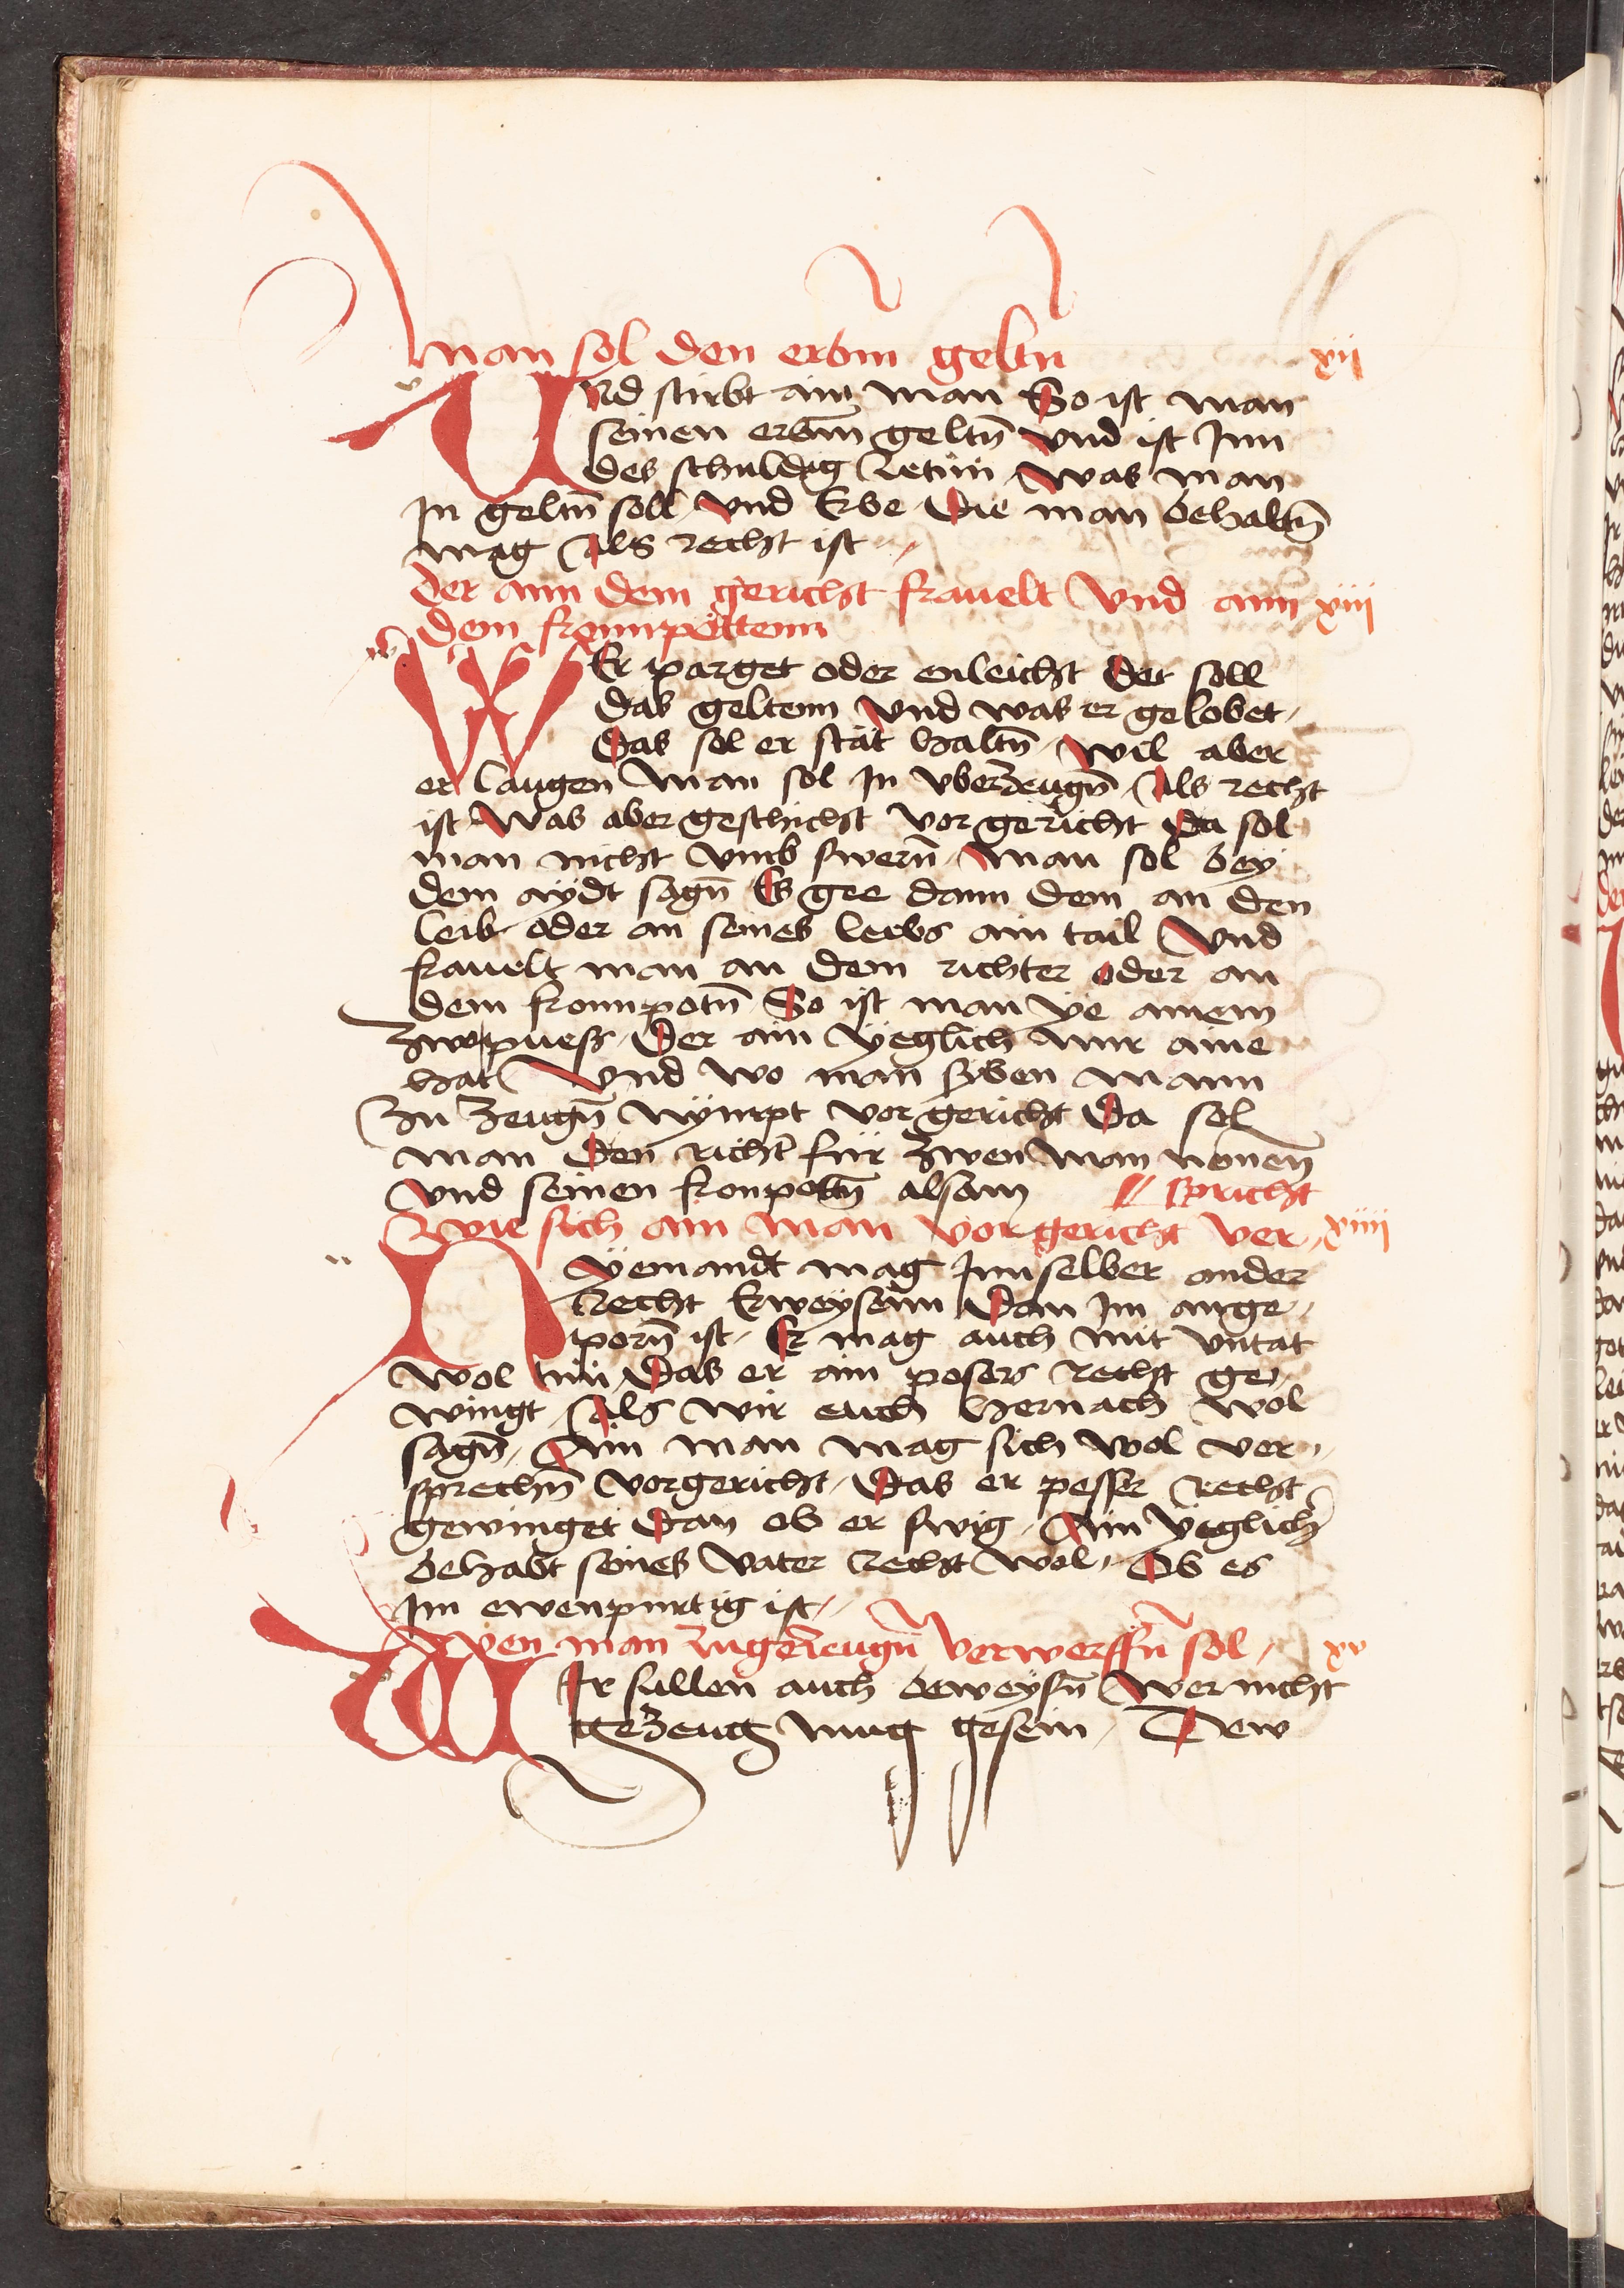 man sol den erbm geltn xii
Vnd stirbt ain man So ist man
seinen erbm geltn̄ vnd ist Inn
des schuldig zetun was man
In geltn̄ soll vnd Erbe Die man behaltn̄
mag Als recht ist
der ann dem gericht frauelt Vnd ann xiii
dem fronnpottenn
WEr parget oder enleicht Der soll
das geltenn vnd was er gelobet
Das sol er stät haltn̄ wil aber
er laugen Man sol In vberzeugn̄ Als recht
ist Was aber geschicht vor gericht Da sol
man nicht vmb swern̄ Man sol bey
dem aydt sagn̄ Es gee dann dem an den
leib oder an seines leibs ain tail Vnd
frauelt man an dem richter oder an
dem fronnpotn̄ So ist man ye ainem
zwo puess Der ain yeglich nur aine
hat Vnd wo man siben mann
zu zeugn̄ nympt vor gericht Da sol
man Den richt̄ für zwen man nenen̄
vnd seinen fronpotn̄ alsam // spricht
Wie sich ain man vor gericht ver xiiii
Nyemandt mag Im selber ander
Recht Erweysenn Dan Im ange
porn̄ ist Er mag auch mit vntat
wol tun Das er ain posers recht ge
wingt Als wir euch hernach wol
sagn̄ Ain man mag sich wol ver
sprechn̄ vorgericht Das er pesser recht
gewinget Dan ob er swig Ain yeglich
behabt seines vater recht wol Ob es
Im ewenpurtig ist
Wen man zugezeugn̄ verwerffn̄ sol xv
WIr sullen auch beweysn̄ Wer nicht
gezeug mug gesein Dew